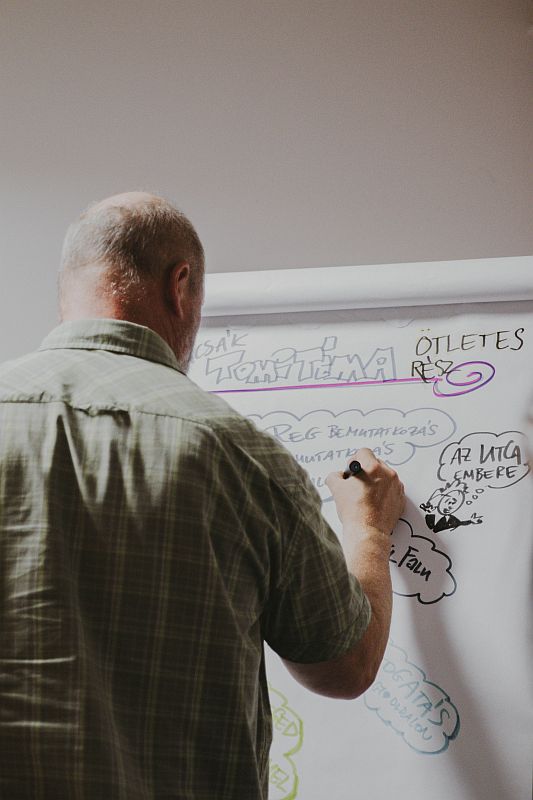 CSÁK
TOMITÉMA
ÖTLETES
RÉSZ
REG BEMUTATKOZÁS
MUTATKOZÁS
AZ UTCA
EMBERE
FALU
OGATÁS
OLDALON